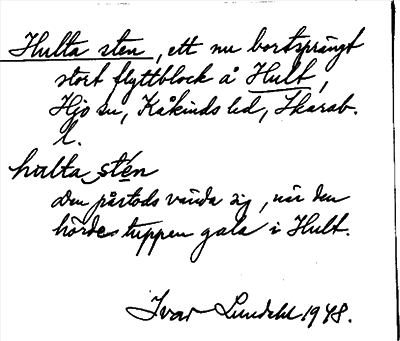 Hulta sten, ett nu bortsprängt
stort flyttblock å Hult,
Hjo sn, Kåkinds hd, Skarab.
l.
hulta stén
Den påstods vända sig, när den
hördes tuppen gala i Hult.
Ivar Lundahl 1948.